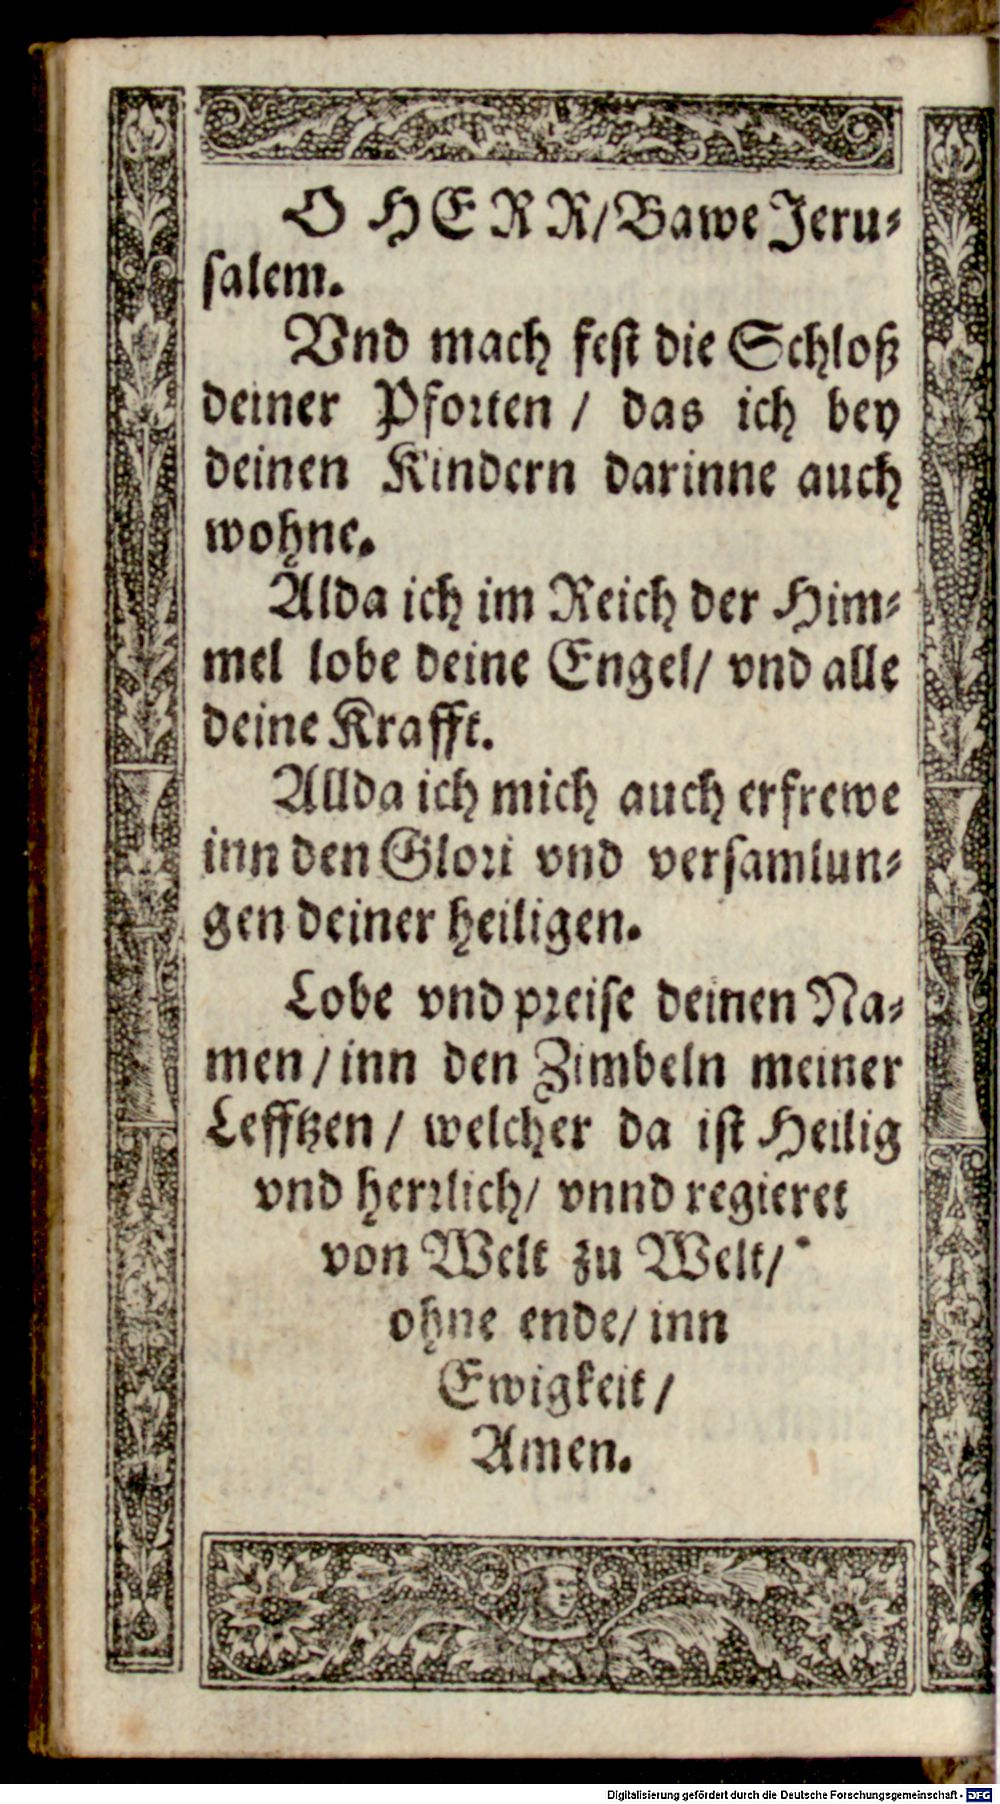 O HERR/Bawe Jeru⸗
ſalem.
Vnd mach feſt die Schloß
deiner Pforten / das ich bey
deinen Kindern darinne auch
wohne.
Alda ich im Reich der Him⸗
mel lobe deine Engel/ vnd alle
deine Krafft.
Allda ich mich auch erfrewe
inn den Glori vnd verſamlun⸗
gen deiner heiligen.
Lobe vnd preiſe deinen Na⸗
men / inn den Zimbeln meiner
Lefftzen / welcher da iſt Heilig
vnd herrlich/ vnnd regieret
von Welt zu Welt/
ohne ende/ inn
Ewigkeit /
Amen.
Digitalisierung gefördert durch die Deutsche Forschungsgemeinschaft - DFG